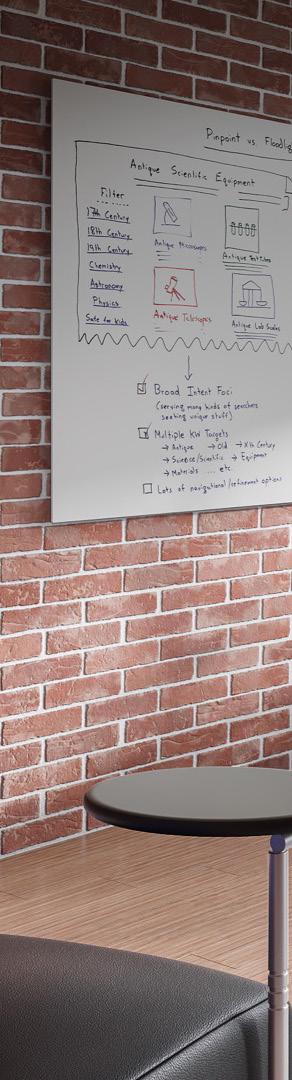 Pinpoint vs. Floodlig
Antique Scientific Equipment
Filter
17th Century
18th Century
19th Century
Chemistry
Astronomy
Physics
Safe for Kids
Antique Microscopes
Antique Test Tubes
Antique Telescopes
Antique Lab Scales
Broad Intent Foci
(serving many kinds of searchers
seeking unique stuff)
Multiple KW Targets
→ Antique → Old → Xth Century
→ Science/Scientific → Equipment
→ Materials ... etc.
Lots of navigational/refinement options